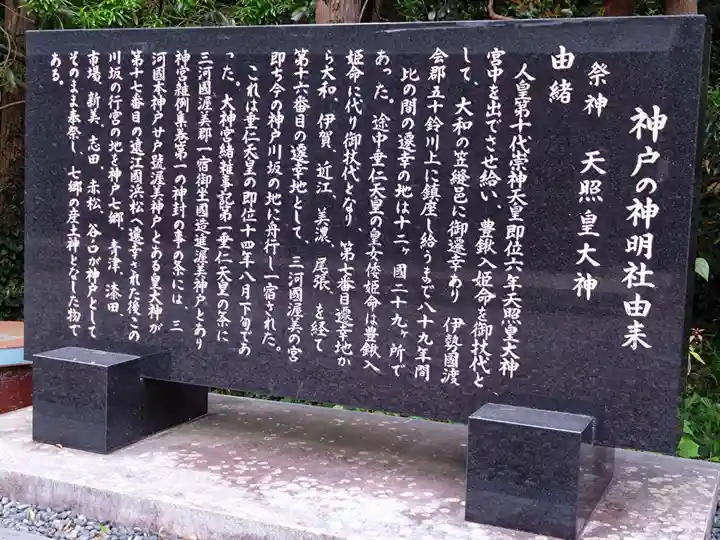 神戸の神明社由来
祭神 天照皇大神
由緒
人皇第十代崇神天皇即位六年天照皇大神
宮中を出でさせ給い、豊鍬入姫命を御扶代と
して、大和の笠縫邑に御遷幸あり 伊勢國渡
会郡五十鈴川上に鎮座し給うまで八十九年間
比の間の遷幸の地は十二ヶ國二十九ヶ所で
あった。途中垂仁天皇の皇女倭姫命は豊鍬入
姫命に代り御扶代となり、第七番目遷幸地か
ら大和、伊賀、近江、美濃、尾張、を経て
第十六番目の遷幸地として、三河國渥美の宮
即ち今の神戸川坂の地に舟行し一宿された。
これは垂仁天皇の即位十四年八月下旬であ
った。大神宮緒雑事記第一垂仁天皇の条に
三河國渥美郡一宿御坐國造進渥美神戸とあり
神宮雑例集巻第一の神封の事の条には、三
河國本神戸廿戸號渥美神戸とある皇大神が
第十七番目の遠江國浜松へ遷幸された後、この
川坂の行宮の地を神戸七郷、青津、漆田、
市場、新美、志田、赤松、谷ノ口が神戸として
そのまま奉祭し、七郷の産土神となした物で
ある。